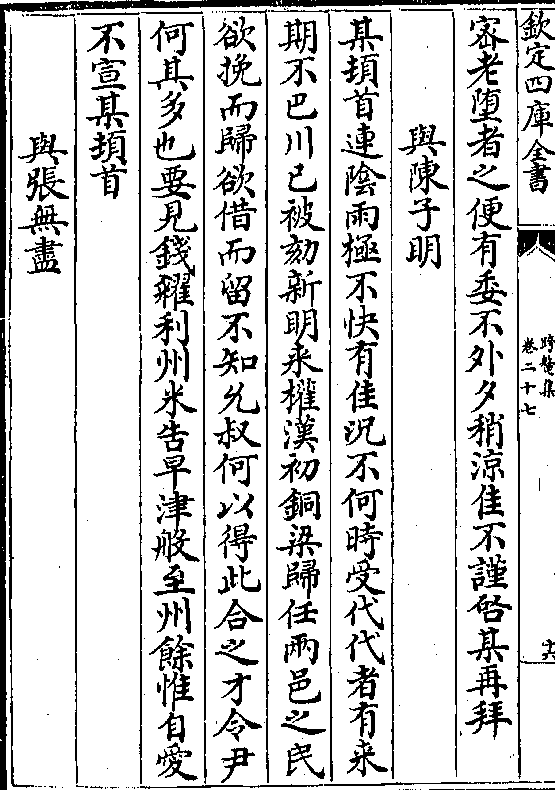 欽定四庫全書
跨鼇集
卷二十七
密老堕者之便有委不外夕稍凉佳不謹啓某再拜
與陳子明
某頓首連陰雨極不快有佳况不何時受代代者有来
期不巴川已被劾新明来權漢初銅梁歸任兩邑之民
欲挽而歸欲借而留不知允叔何以得此合之才令尹
何其多也要見錢糴利州米告早津般至州餘惟自愛
不宣某頓首
與張無盡